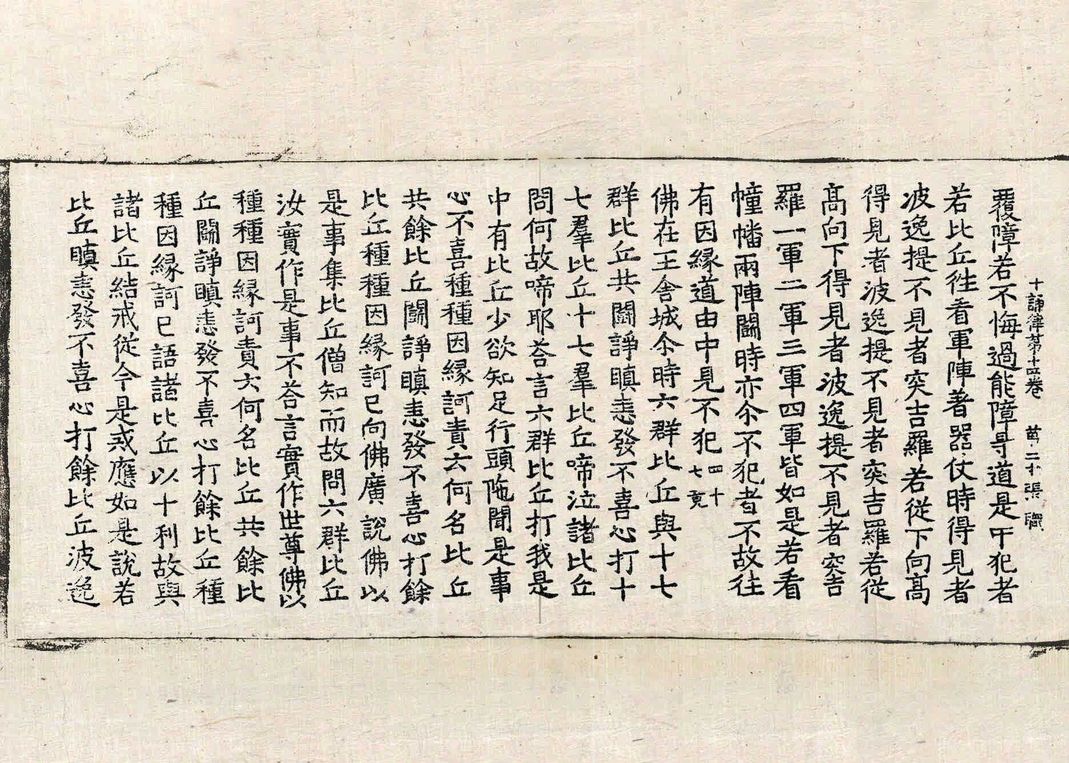 十誦律第十四卷 第二十張 職
覆障若不悔過能障导道是中犯者
若比丘徃看軍陣著器仗時得見者
波逸提不見者突吉羅若從下向高
得見者波逸提不見者突吉羅若從
髙向下得見者波逸提不見者突吉
羅一軍二軍三軍四軍皆如是若看
幢幡兩陣鬪時亦尒不犯者不故往
有因緣道由中見不犯四十七竟
佛在王舍城尒時六群比丘與十七
群比丘共鬪諍瞋恚發不喜心打十
七羣比丘十七羣比丘啼泣諸比丘
問何故啼耶荅言六群比丘打我是
中有比丘少欲知足行頭陁聞是事
心不喜種種因緣訶責云何名比丘
共餘比丘鬪諍瞋恚發不喜心打餘
比丘種種因緣訶已向佛廣說佛以
是事集比丘僧知而故問六群比丘
汝實作是事不荅言實作世尊佛以
種種因緣訶責云何名比丘共餘比
丘鬪諍瞋恚發不喜心打餘比丘種
種因緣訶已語諸比丘以十利故與
諸比丘結戒從今是戒應如是說若
比丘瞋恚發不喜心打餘比丘波逸